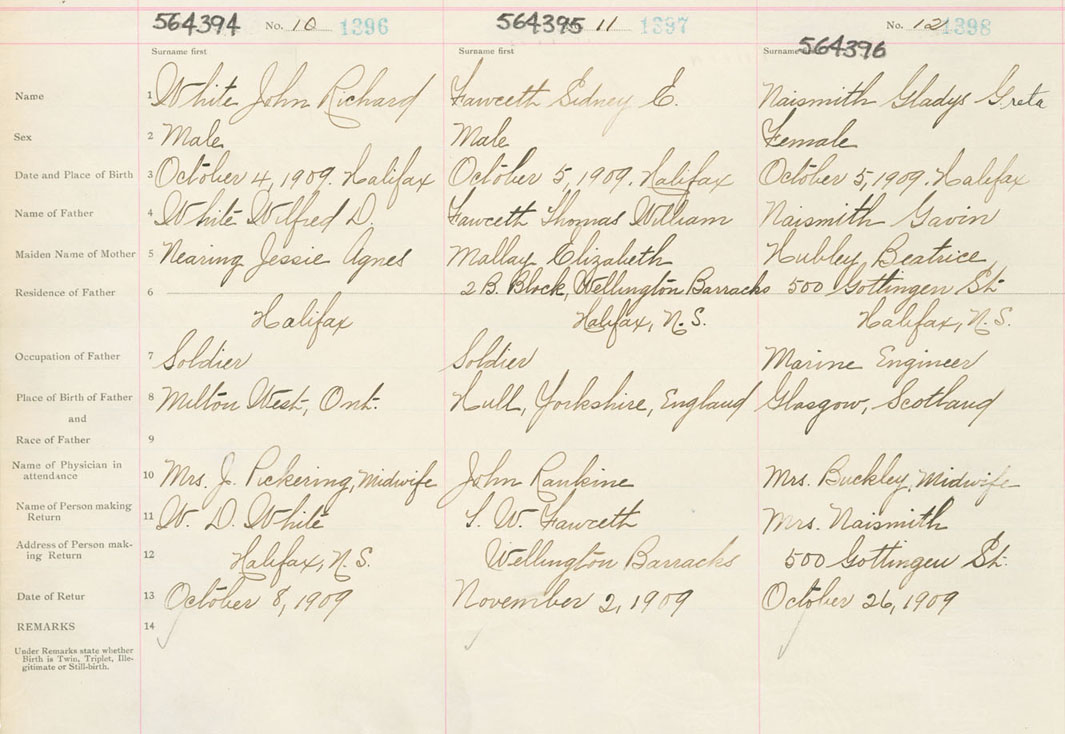 564394 No. 10 1396 564395 11 1397 No. 12 1398
Surname first Surname first Surname 564396
Name 1 White John Richard Fawceth Sidney E. Naismith Gladys Greta
Sex 2 Male Male Female
Date and Place of Birth 3 October 4, 1909. Halifax October 5, 1909. Halifax October 5, 1909. Halifax
Name of Father 4 White Wilfred D. Fawceth Thomas William Naismith Gavin
Maiden Name of Mother 5 Nearing Jessie Agnes Mallay Elizabeth Hubley Beatrice
Residence of Father 6 2 B. Block, Wellington Barracks 500 Gottingen St.
Halifax Halifax, N.S. Halifax, N.S.
Occupation of Father 7 Soldier Soldier Marine Engineer
Place of Birth of Father 8 Milton West, Ont. Hull, Yorkshire, England Glasgow, Scotland
and
Race of Father 9
Name of Physician in
attendance 10 Mrs. J. Pickering, Midwife John Rankine Mrs. Buckley, Midwife
Name of Person making
Return 11 W. D. White T. W. Fawceth Mrs. Naismith
Address of Person mak-
ing Return 12 Halifax, N.S. Wellington Barracks 500 Gottingen St.
Date of Retur 13 October 8, 1909 November 2, 1909 October 26, 1909
REMARKS 14
Under Remarks state whether
Birth is Twin, Triplet, Ille-
gitimate or Still-birth.